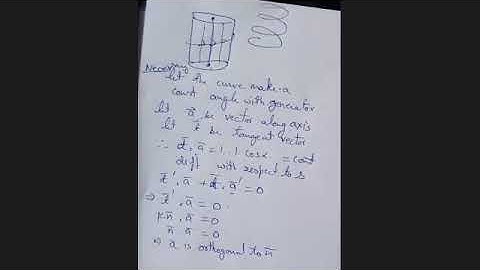 Necessary
let the curve make a
const angle with generator
let a̅ be vector along axis
let t̅ be tangent vector
∴ t̅.a̅ = 1.1 cosα = const
diff with respect to s
t̅'.a̅ + t̅.a̅' = 0
⇒ t̅'.a̅ = 0
κn̅.a̅ = 0
n̅ a̅ = 0
⇒ a is orthogonal to n̅